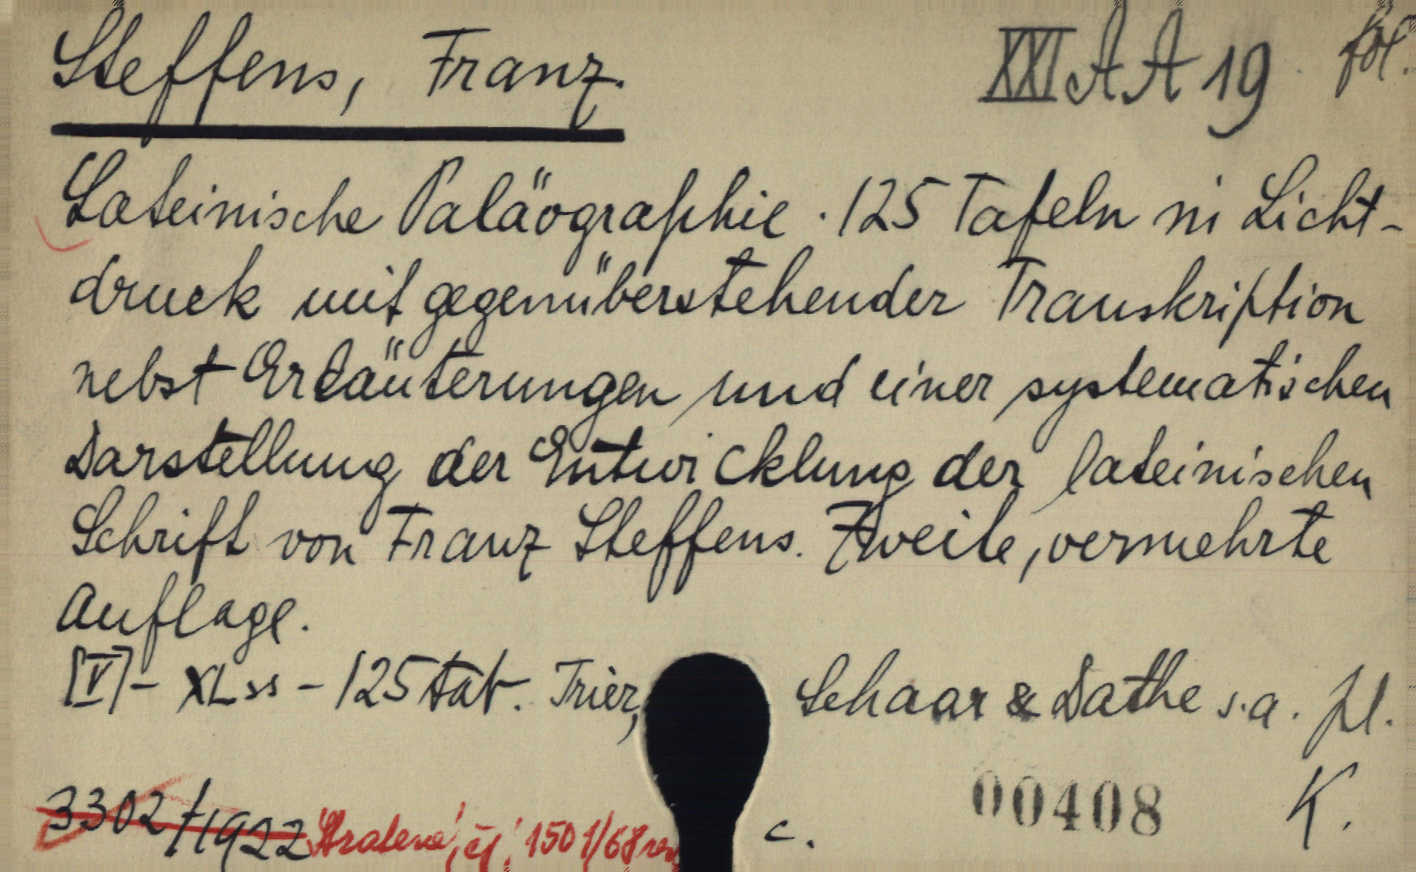 Steffens, Franz. XXI A A 19 fol.
Lateinische Paläographie. 125 Tafeln in Licht-
druck mit gegenüberstehender Transkription
nebst Erläuterungen und einer systematischen
Darstellung der Entwicklung der lateinischen
Schrift von Franz Steffens. Zweite, vermehrte
Auflage.
[V] - XL ss - 125 tab. Trier, Schaar & Dathe s.a. pl.
3302/1922 c. 00408 K.
čj. 1501/68